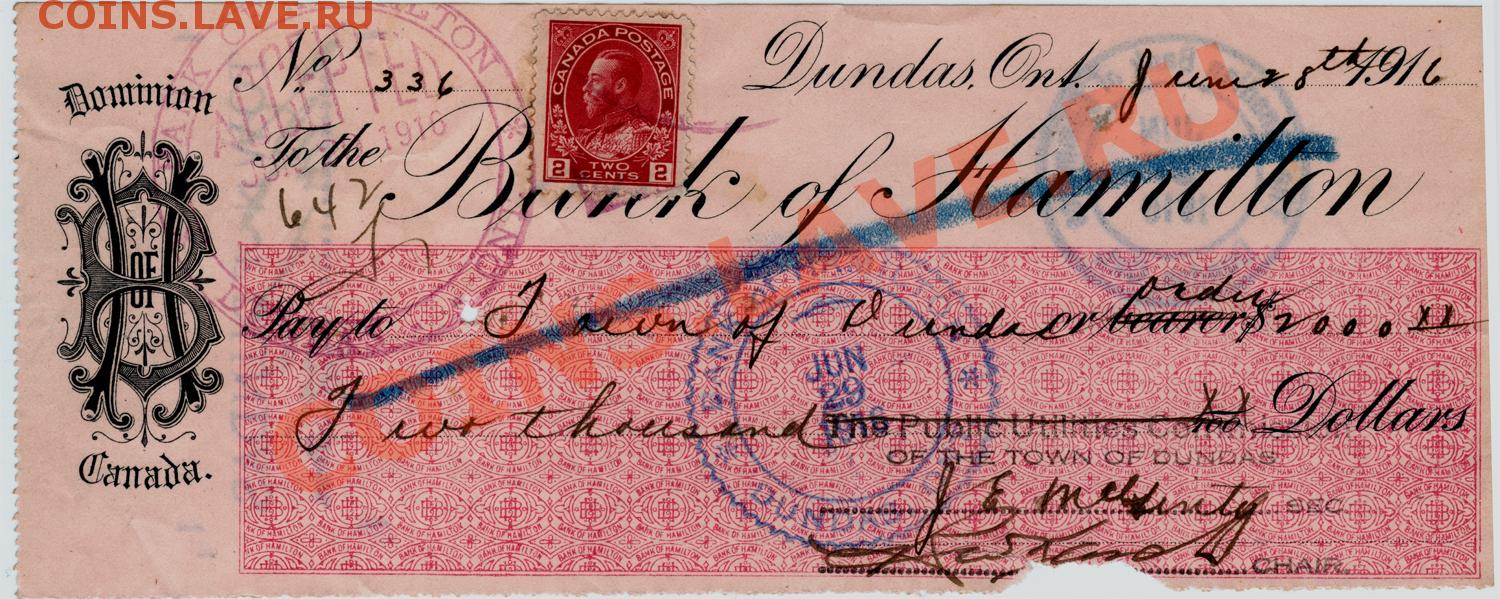 COINS.LAVE.RU
No. 336
Dundas, Ont. June 28th 1916
CANADA POSTAGE
2 TWO CENTS 2
To the Bank of Hamilton
642
Dominion
B OF H
Canada.
Pay to Town of Dundas or bearer order $2000 xx
Two thousand xx/100 Dollars
The Public Utilities
OF THE TOWN OF DUNDAS
SEC.
CHAIR.
JUN 29 1916
DUNDAS
COINS.LAVE.RU